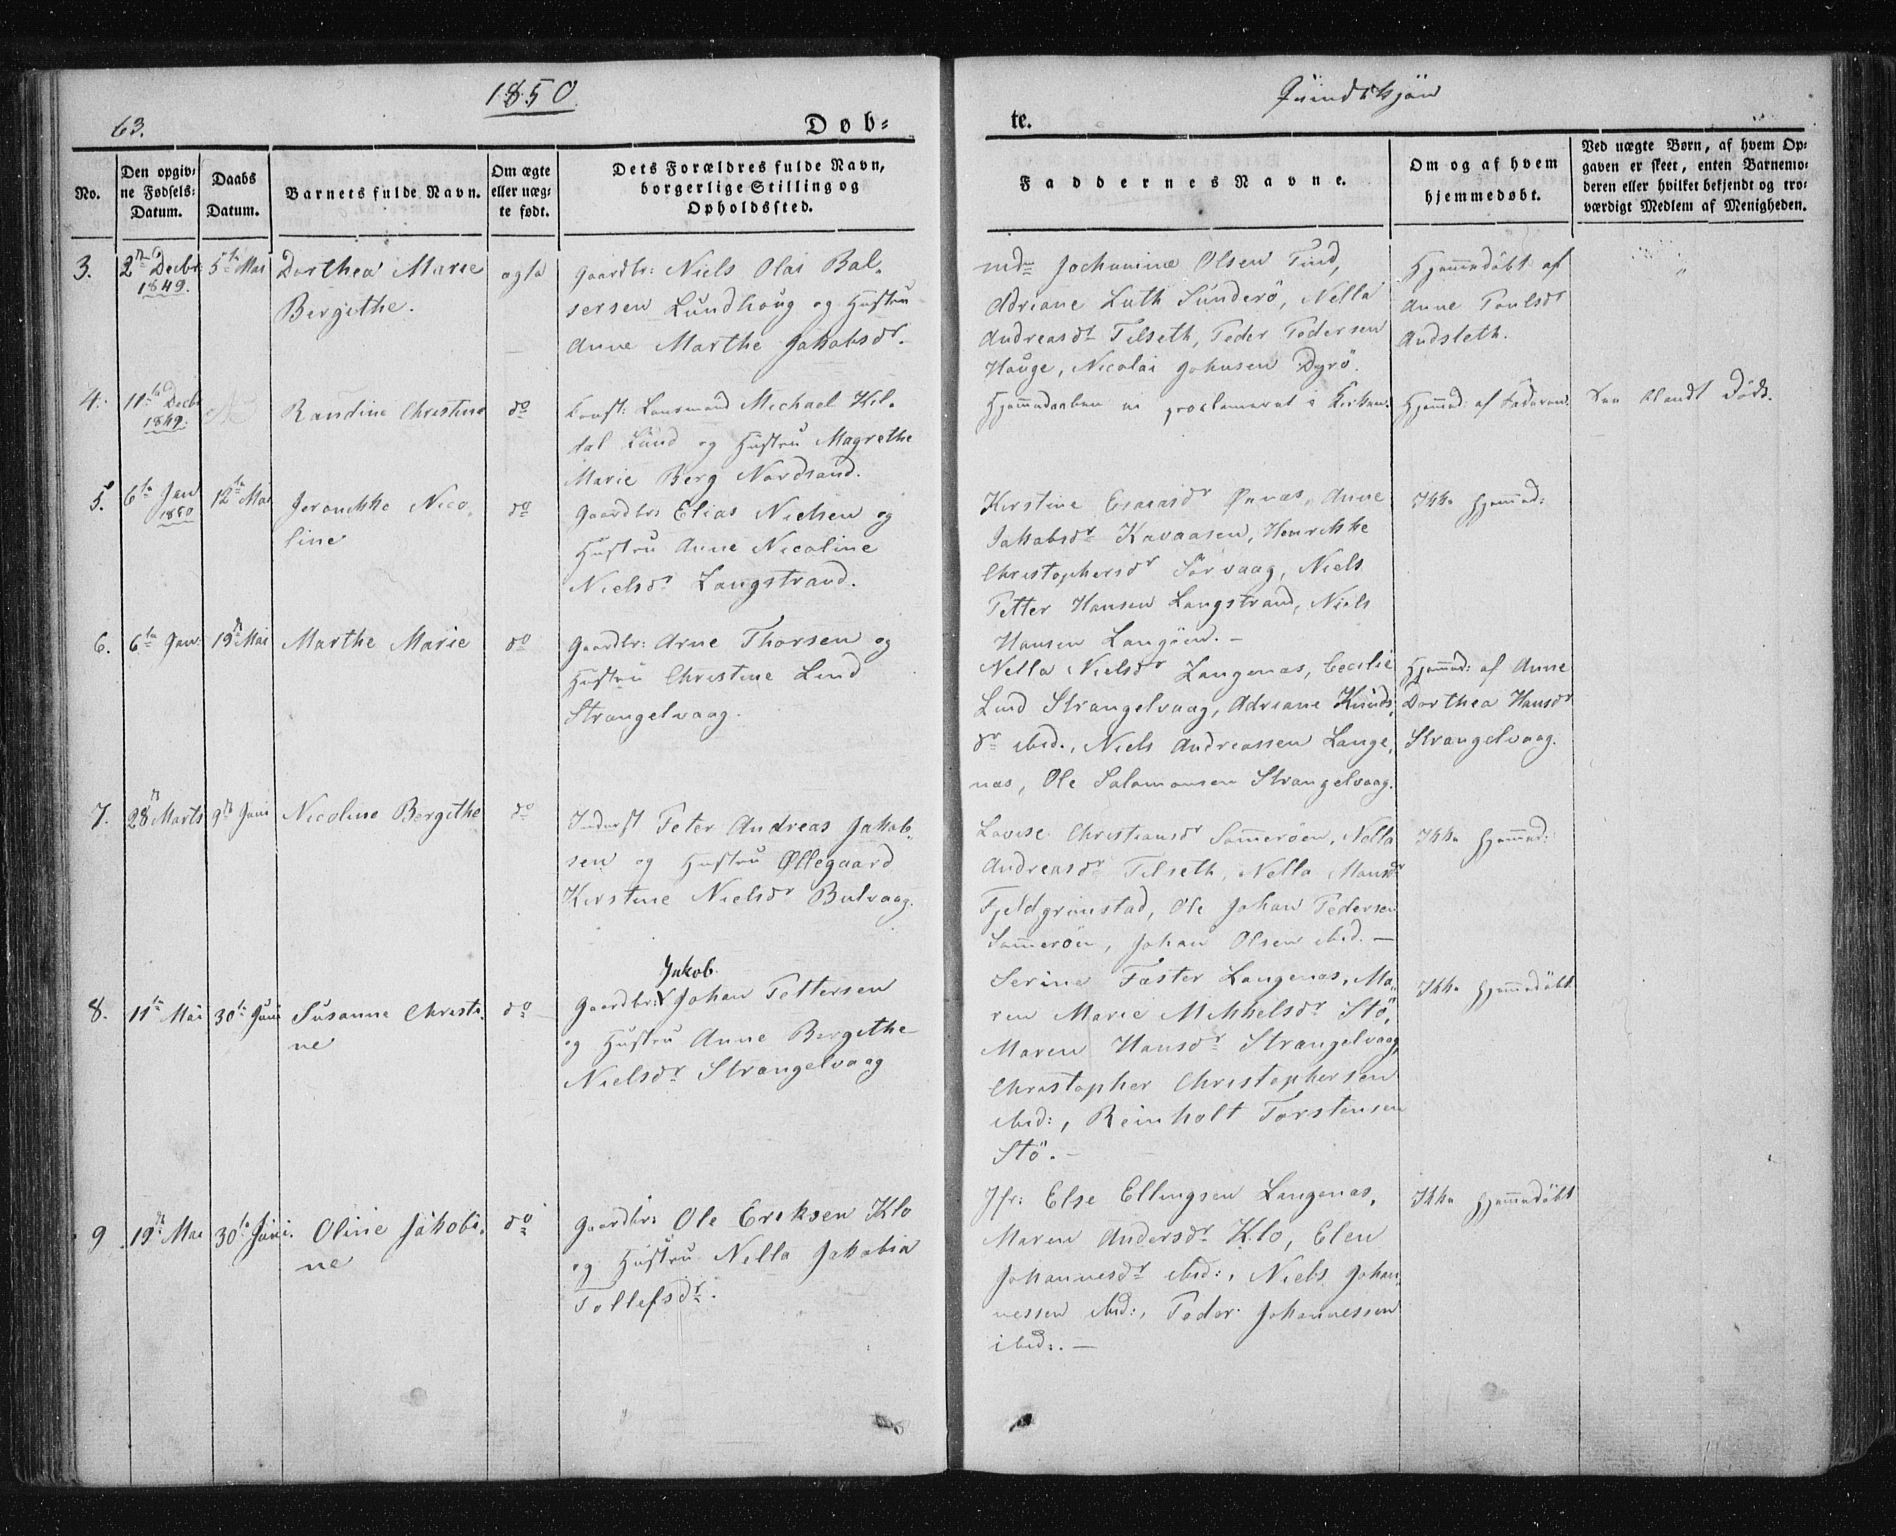 1850
Qvindekjön
63.
Døb=
te.
No.
Den opgiv=
ne Fødsels=
Datum.
Daabs
Datum.
Barnets fulde Navn.
Om ægte
eller uæg=
te født.
Dets Forældres fulde Navn,
borgerlige Stilling og
Opholdssted.
Faddernes Navne.
Om og af hvem
hjemmedøbt.
Ved uægte Børn, af hvem Op=
gaven er skeet, enten Barnemo=
deren eller hvilket bekjendt og tro=
værdigt Medlem af Menigheden.
3.
2den Decbr
1849.
5te Mai
Dorthea Marie
Bergithe.
ægte
Gaardbr: Niels Olai Bal-
sersen Lundhoug og Hustru
Anne Marthe Jakobsdr.
md. Jochumine Olsen Tind,
Adriane Luth Sunderö, Nella
Andreasdr Tilseth, Peder Pedersen
Houge, Nicolai Johnsen Dyrö.
Hjemmedöbt af
Anne Poulsdr
Andsleth.
4.
11te Decbr
1849.
Randine Christine
do
Const: Lensmand Michael Kil-
dal Lund og Hustru Magrethe
Marie Berg Nordsand.
Hjemmedaaben ei proclameret i Kirken.
Hjemmed: af Faderen.
See blandt Döde.
5.
6te Jan
1850
12te Mai
Jeronikka Nico-
line
do
Gaardbr: Elias Nielsen og
Hustru Anne Nicoline
Nielsdr Langstrand.
Kirstine Esaiasdr Önnæs, Anne
Jakobsdr Kavaasen, Henrikke
Christophersdr Sörvaag, Niels
Petter Hansen Langstrand, Niels
Hansen Langöen. –
Ikke hjemmed:
6.
6te Jan:
19de Mai
Marthe Marie
do
Gaardbr: Arne Thorsen og
Hustru Christine Lind
Strangelvaag.
Nella Nielsdr Langenæs, Cecilie
Lind Strangelvaag, Adriane Knuds-
dr ibid., Niels Andreassen Lange-
næs, Ole Salomonsen Strangelvaag.
Hjemmed: af Anne
Dorthea Hansdr
Strangelvaag.
7.
28de Marts
9de Juni
Nicoline Bergithe
do
Inderst Peter Andreas Jakob-
sen og Hustru Øllegaard
Kirstine Nielsdr Bulvaag.
Lovise Christiansdr Sommeröen, Nella
Andreasdr Tilseth, Nella Monsdr
Fjeldgrimstad, Ole Johan Pedersen
Sommeröen, Johan Olsen ibid. —
Ikke hjemmed:
8.
11te Mai
30te Juni
Susanne Christi-
ne
do
Jakob
Gaardbr: Johan Pettersen
og Hustru Anne Bergithe
Nielsdr Strangelvaag
Serine Faster Langenæs, Ma-
ren Marie Mikkelsdr Stö,
Maren Hansdr Strangelvaag,
Christopher Christophersen
ibid:, Reinholt Torstensen
Stö. –
Ikke hjemmedöbt
9
19de Mai
30te Juni.
Oline Jakobi-
ne
do
Gaardbr: Ole Eriksen Klo
og Hustru Nella Jakobia
Tollefsdr.
Jfr: Else Ellingsen Langenæs,
Maren Andersdr Klo, Elen
Johannesdr ibid:, Niels Johan-
nessen ibid:, Peder Johannessen
ibid:. —
Ikke hjemmedöbt